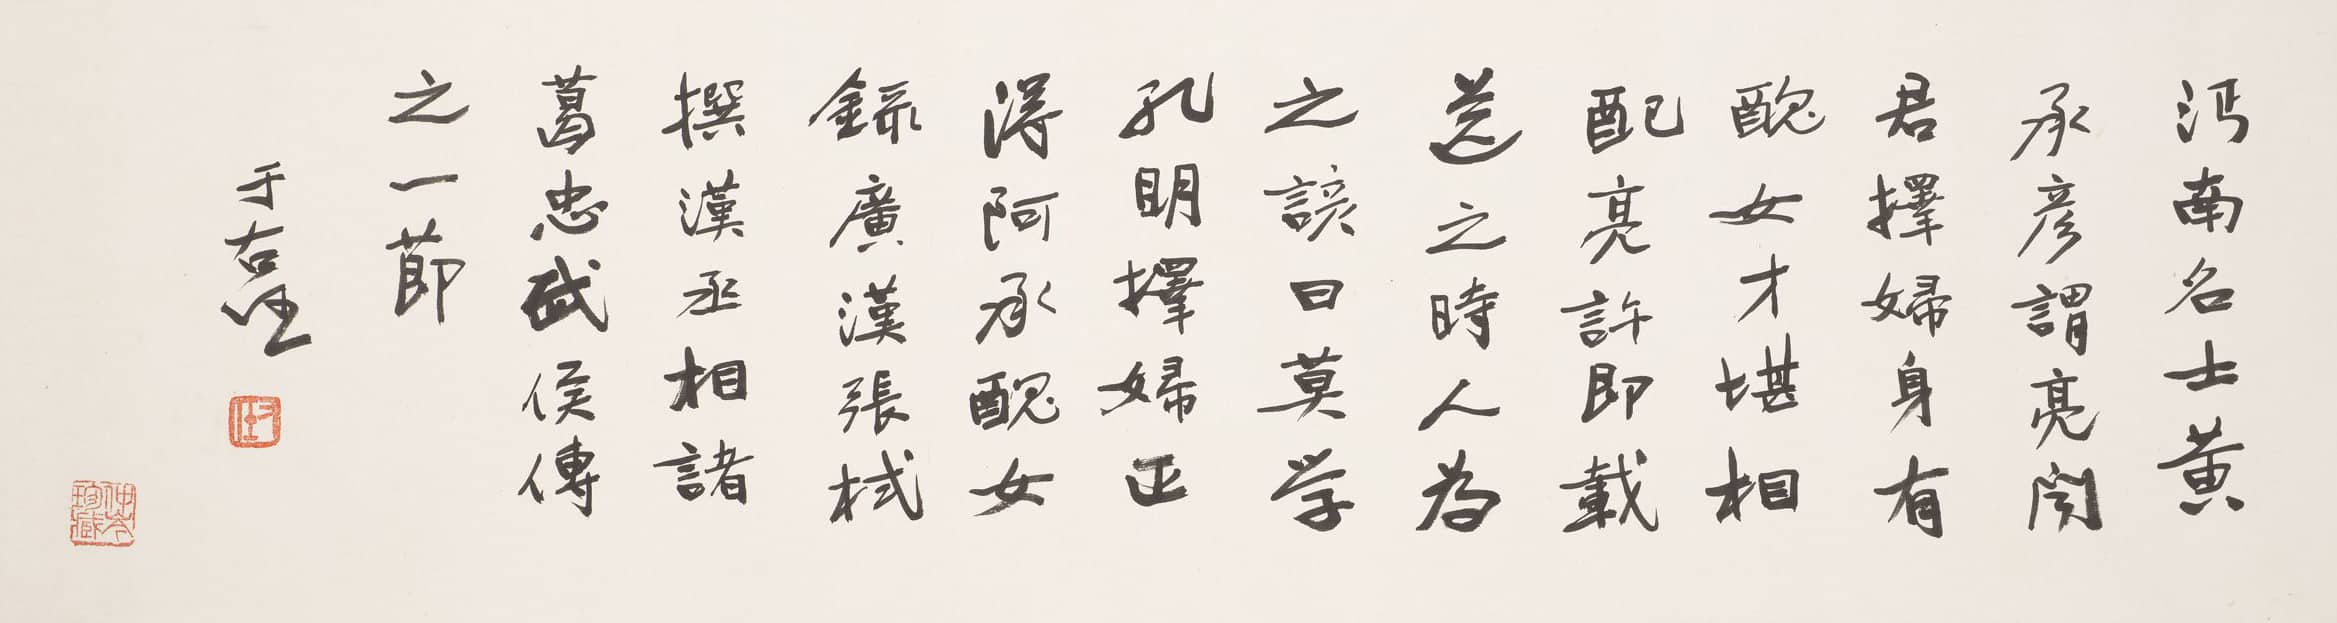 沔南名士黄
承彦謂亮闻
君擇婦身有
醜女才堪相
配亮許即載
送之時人為
之諺曰莫学
孔明擇婦正
得阿承醜女
録廣漢張栻
撰漢丞相諸
葛忠武侯傳
之一節
于右任
右任
仲岑
珍藏